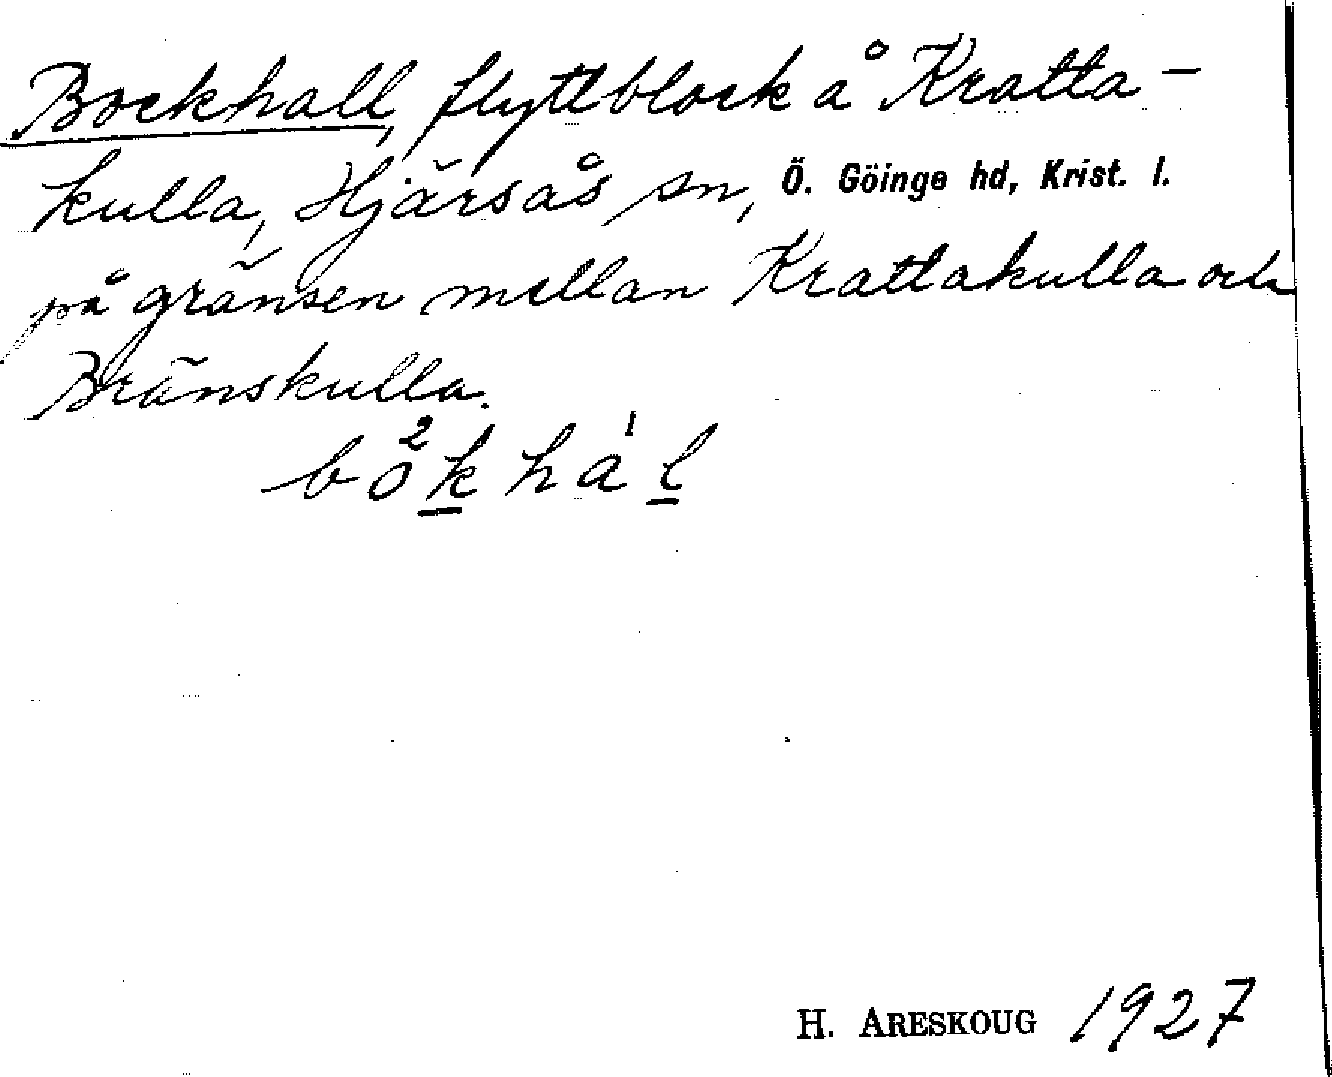 Bockhall, flyttblock å Kratta-
kulla, Hjärsås sn, Ö. Göinge hd, Krist. l.
på gränsen mellan Krattakulla och
Bränskulla.
bo²k ha¹l
H. ARESKOUG 1927